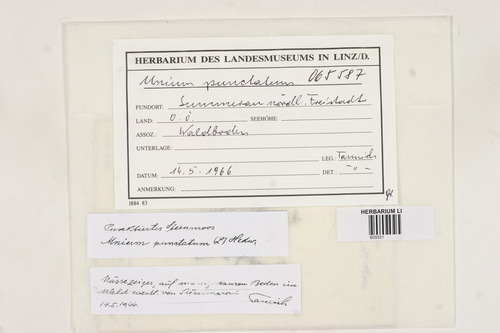 HERBARIUM DES LANDESMUSEUMS IN LINZ/D.
Mnium punctatum 068587
FUNDORT: Summerau nördl. Freistadt
LAND: O.Ö. SEEHÖHE:
ASSOZ.: Waldboden
UNTERLAGE:
LEG.:
DATUM: 14.5.1966 DET.: - " -
ANMERKUNG:
1884 83
HERBARIUM LI
Punktiertes Sternmoos
Mnium punctatum (L) Hedw.
Nässezeiger, auf saurem Boden im
Wald westl. von Summerau
14.5.1966.